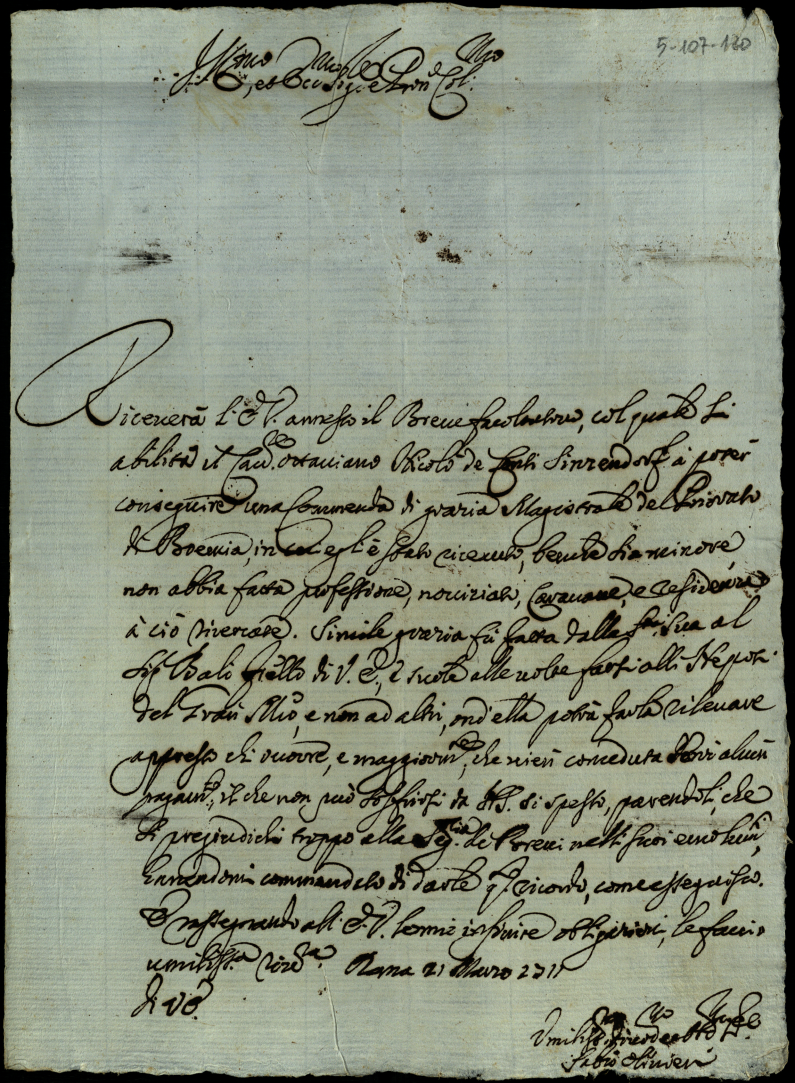 5-107-120
Ill.mo
et Ecc Sig.e e Pron Col.
Riceverà l'E.V. annesso il Breve facoltativo, col quale si
abilita il Cav. Ottaviano Nicolò de Conti Sinzendorf à poter
conseguire una Commenda di grazia Magistrale del Priorato
di Boemia, in cui egl'è stato ricevuto, benche sia minore,
non abbia fatta professione, noviziato, Caravane, e residenza
à ciò ricercate. Simile grazia fù fatta dalla S.tà Sua al
Sig. Balì fr̃ello di V.E., e suole alle volte farsi alli Nepoti
del Gran M.ro, e non ad altri, ond'ella potrà farla rilevare
appresso chi occorre, e maggiorm.te, che vien conceduta senza alcun
pagam.to, il che non può soffrirsi da N.S. si spesso, parendoli, che
si pregiudichi troppo alla Seg.ria de Brevi nelli suoi emolum.ti,
havendomi commandato di darle q.o ricordo, come esseguisco.
E rassegnando all'E.V. le mie infinite obligazioni, le faccio
umiliss.a river.a Roma 21 Marzo 1711
di V.E.
Umiliss.
Fabio Olivieri